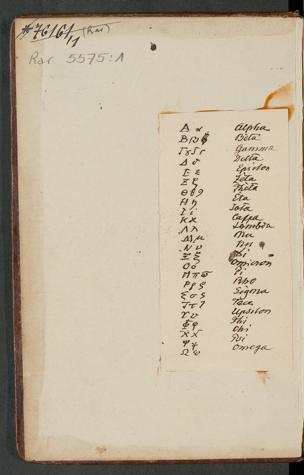 *76161/1 (Rar)
Rar 5575:1
Δ α Alpha
Β Beta
Γ γ Gamma
Δ δ Delta
Ε ε Epsilon
Ξ ξ Zeta
Θ θ Theta
Η η Eta
Ι ι Iota
Κ κ Cappa
Λ λ Lambda
Μ μ Mu
Ν ν Ny
Ξ ξ Xi
Ο ο Omicron
Π π ϖ Pi
Ρ ρ Rho
Σ σ ς Sigma
Τ τ Tau
Υ υ Upsilon
Φ φ Phi
Χ χ Chi
Ψ ψ Psi
Ω ω Omega